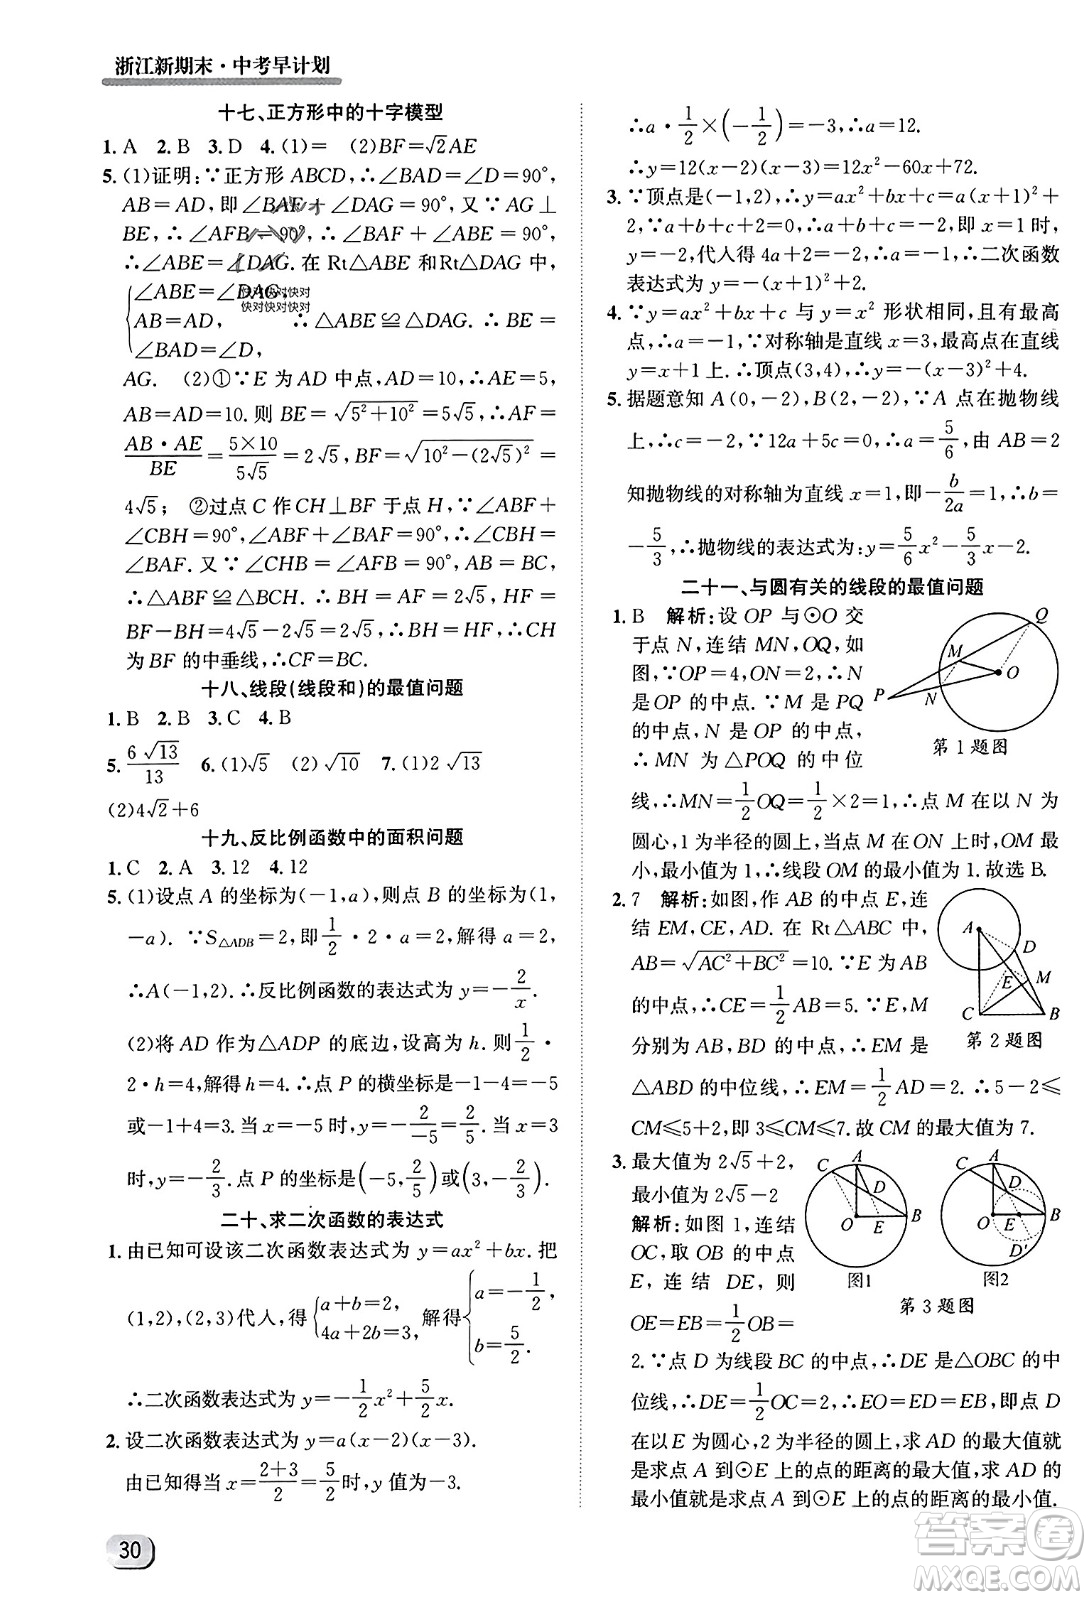 浙江新期末·中考早计划
十七、正方形中的十字模型
1. A 2. B 3. D 4. (1)= (2)BF=√2AE
5. (1)证明:∵正方形 ABCD,∴∠BAD=∠D=90°,
AB=AD,即∠BAE+∠DAG=90°,又∵AG⊥
BE,∴∠AFB=90°,
∴∠ABE=∠DAG.在 Rt△ABE 和Rt△DAG 中,
{∠ABE=∠DAG,
AB=AD, ∴△ABE≌△DAG.∴BE=
∠BAD=∠D,
快对快对快对
快对快对快对
AG. (2)①∵E 为 AD 中点,∴AE=5,
AB=AD=10.则 BE=√(5²+10²)=5√5,∴AF=
AB·AE/BE=5×10/5√5=2√5,BF=√(10²-(2√5)²)=
4√5; ②过点 C 作 CH⊥BF 于点 H,∵∠ABF+
∠CBH=90°,∠ABF+∠BAF=90°,∴∠CBH=
∠BAF.又∵∠AFB=∠BHC=90°,AB=BC,
∴△ABF≌△BCH.∴BH=AF=2√5.∴HF=
BF-BH=4√5-2√5=2√5,∴BH=HF,∴CH
为 BF 的中垂线,∴CF=BC.
十八、线段(线段和)的最值问题
1. B 2. B 3. C 4. B
5. 6√13/13 6. (1)√5 (2)√10 7. (1)2√13
(2)4√2+6
十九、反比例函数中的面积问题
1. C 2. A 3. 12 4. 12
5. (1)设点 A 的坐标为(-1,a),则点 B 的坐标为(1,
-a). ∵S△ADB=2,即1/2·2·a=2,解得 a=2,
∴A(-1,2).∴反比例函数的表达式为 y=-2/x.
(2)将 AD 作为△ADP 的底边,高为 h.则1/2·
2·h=4,解得h=4.∴点 P 的横坐标是-1-4=-5
或-1+4=3.当 x=-5 时,y=-2/-5=2/5.当 x=3
时,y=-2/3.∴点 P 的坐标是(-5,2/5)或(3,-2/3).
二十、求二次函数的表达式
1. 由已知可设该二次函数表达式为 y=ax²+bx.把
(1,2),(2,3)代人,得{a+b=2, 4a+2b=3,解得{a=-1/2, b=5/2.
∴二次函数表达式为 y=-1/2x²+5/2x.
2. 设二次函数的表达式为 y=a(x-2)(x-3).
由已知当 x=2+3/2=5/2时,y 值为-3.
30
∴a·1/2×(-1/2)=-3,∴a=12.
∴y=12(x-2)(x-3)=12x²-60x+72.
3. ∵顶点是(-1,2),∴y=ax²+bx+c=a(x+1)²
+2,又∵4a+2b+c=-16,∴当 x=2 时,
y=-16,代人得 4a+2b+c=-16
表达式为 y=-2(x+1)²+2.
4. ∵y=ax²+bx+c 与 y=x² 形状相同,且有最高
点,∴a=-1,∵对称轴是直线 x=3,最高点在直线
y=x+1 上.∴顶点(3,4),∴y=-(x-3)²+4.
5. 据题意知 A(0,-2),B(2,-2),∵A 点在抛物线
上,∴c=-2,∵12a+5c=0,∴a=5/6,由 AB=2
知抛物线的对称轴为直线 x=1,即-b/2a=1,∴b=
-5/3,∴抛物线的表达式为:y=5/6x²-5/3x-2.
二十一、与圆有关的线段的最值问题
1. B 解析:设 OP 与⊙O 交
于点 N,连结 MN,OQ,如
图,∵OP=4,ON=2,∴N
是 OP 的中点.∵M 是 PQ
的中点,N 是 OP 的中点,
∴MN 为△POQ 的中位
线,∴MN=1/2OQ=1/2×2=1,∴点 M 在以 N 为
圆心,1 为半径的圆上,当点 M 在 ON 上时,OM 最
小,最小值为 1,∴线段 OM 的最小值为 1.故选 B.
Q
M
O
P
N
第 1 题图
2. 7 解析:如图,作 AB 的中点 E,连
结 EM,CE,AD. 在 Rt△ABC 中,
AB=√(AC²+BC²)=10.∵E 为 AB
的中点,∴CE=1/2AB=5.∵E,M
分别为 AB,BD 的中点,∴EM 是
△ABD 的中位线,∴EM=1/2AD=2.∴5-2≤
CM≤5+2,即 3≤CM≤7.故 CM 的最大值为 7.
A
D
E
M
C
B
第 2 题图
3. 最大值为 2√5+2,
最小值为 2√5-2
解析:如图 1,连结
OC,取 OB 的中点
E,连结 DE,则
OE=EB=1/2OB=
2.∵点 D 为线段 BC 的中点,∴DE 是△OBC 的中
位线,∴DE=1/2OC=2,∴EO=ED=EB,即点 D
在以 E 为圆心,2 为半径的圆上,求 AD 的最大值就
是求点 A 到⊙E 上的点的距离的最大值,求 AD 的
最小值就是求点 A 到⊙E 上的点的距离的最小值.
A
C
D
O
E
B
图1
A
C
D
O
E
B
D′
图2
第 3 题图
答案圈
MXQE.COM